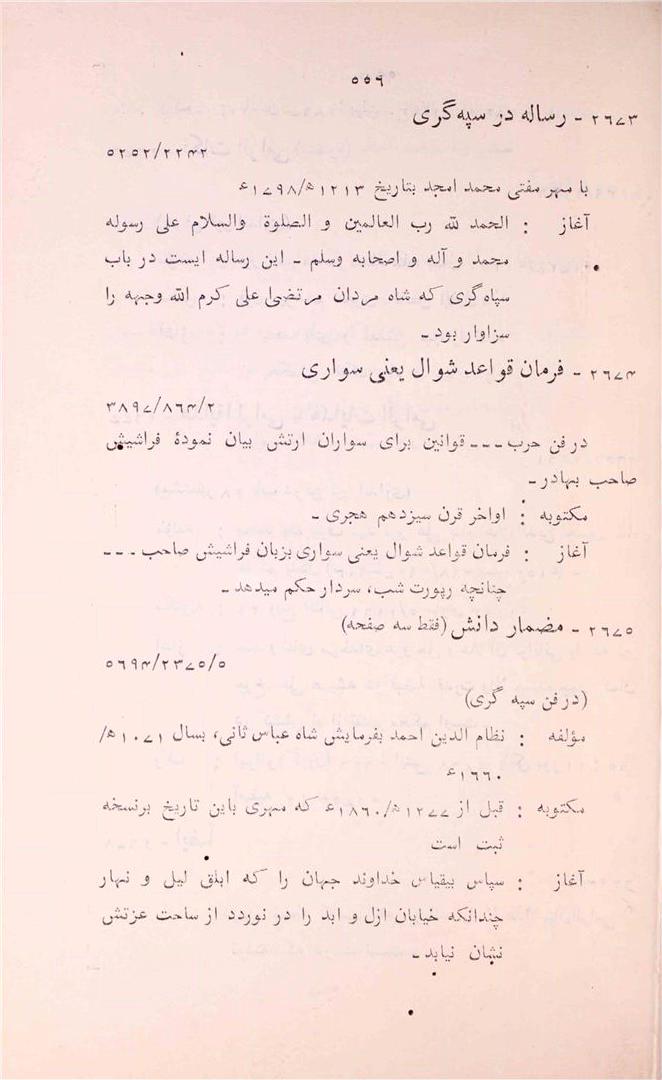 ۵۵۶
۲۶۷۳ - رساله در سپه‌گری
۵۲۵۲/۲۲۴۲
با مهر مفتی محمد امجد بتاریخ ۱۲۱۳ه/۱۷۹۸ء
آغاز : الحمد لله رب العالمین و الصلوة والسلام علی رسوله
محمد و آله و اصحابه وسلم - این رساله ایست در باب
سپاه‌گری که شاه مردان مرتضیٰ علی کرم الله وجهه را
سزاوار بود -
۲۶۷۴ - فرمان قواعد شوال یعنی سواری
۳۸۹۷/۸۶۴/۲
در فن حرب --- قوانین برای سواران ارتش بیان نمودهٔ فراشیش
صاحب بهادر -
مکتوبه : اواخر قرن سیزدهم هجری -
آغاز : فرمان قواعد شوال یعنی سواری بزبان فراشیش صاحب ---
چنانچه رپورت شب، سردار حکم میدهد -
۲۶۷۵ - مضمار دانش (فقط سه صفحه)
۵۶۹۴/۲۳۷۵/۵
(در فن سپه گری)
مؤلفه : نظام الدین احمد بفرمایش شاه عباس ثانی، بسال ۱۰۷۱ه/
۱۶۶۰ء
مکتوبه : قبل از ۱۲۷۷ه/۱۸۶۰ء که مهری باین تاریخ برنسخه
ثبت است
آغاز : سپاس بیقیاس خداوند جهان را که ابلق لیل و نهار
چندانکه خیابان ازل و ابد را در نوردد از ساحت عزتش
نشان نیابد -